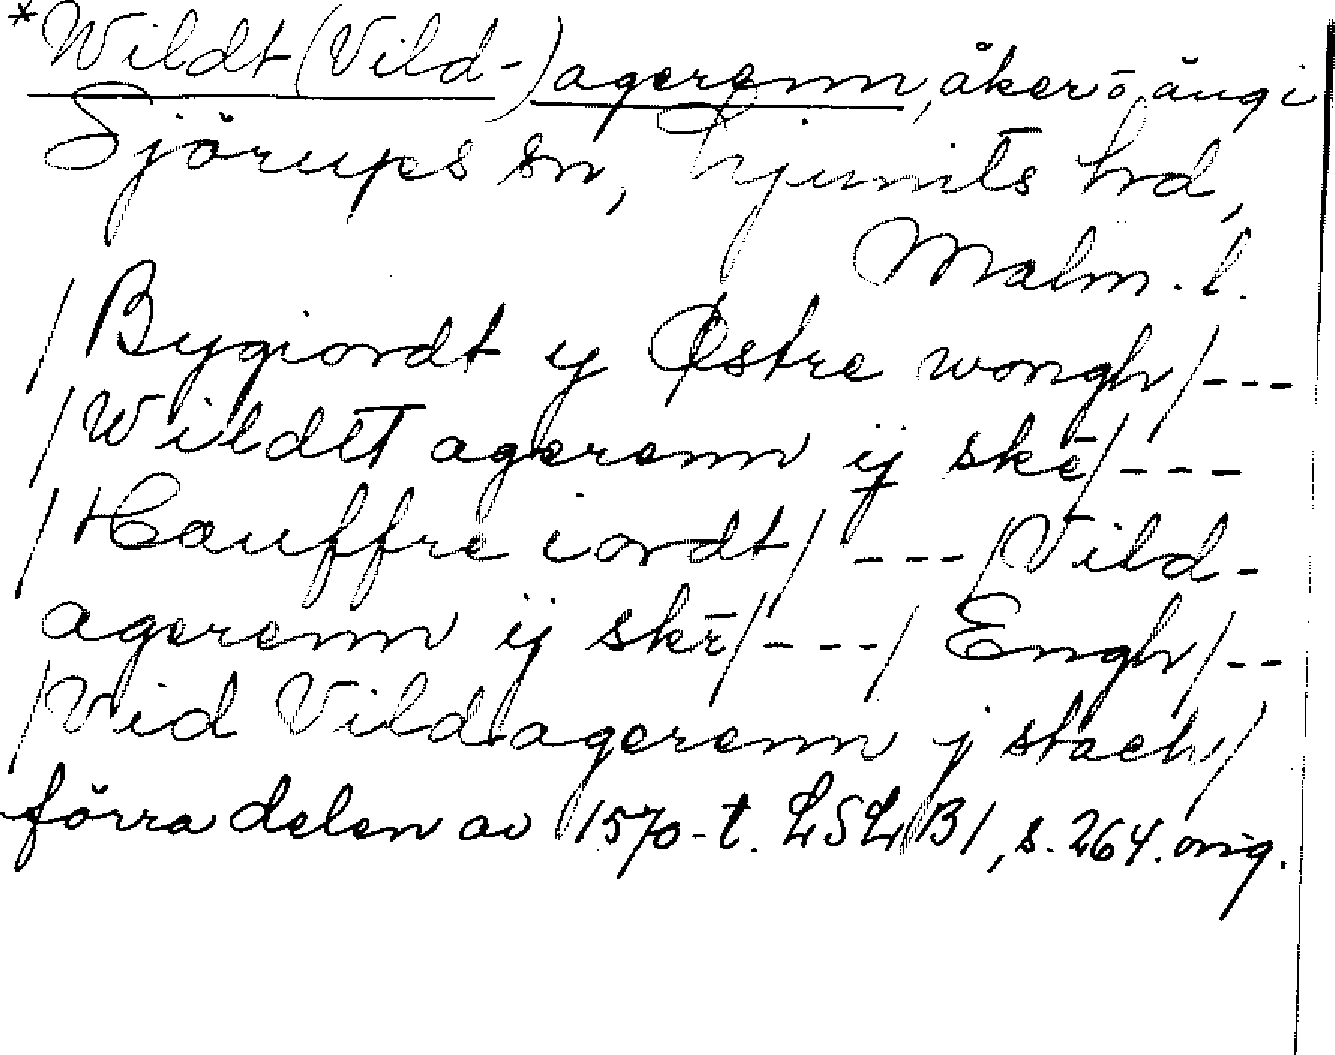 *Wildt (Vild-) agerenn, åker o äng i
Sjörups sn, Ljunits hrd,
Malm. l.
/Bygiordt y Østre wongh/---
/Wildtt agerenn ij ske/---
/Hauffre iordt/ ---/Vild-
agerenn ij skē/---/Engh/--
/Vid Vildagerenn j stach/
förra delen av 1570-t. LSL B1, s. 264. orig.